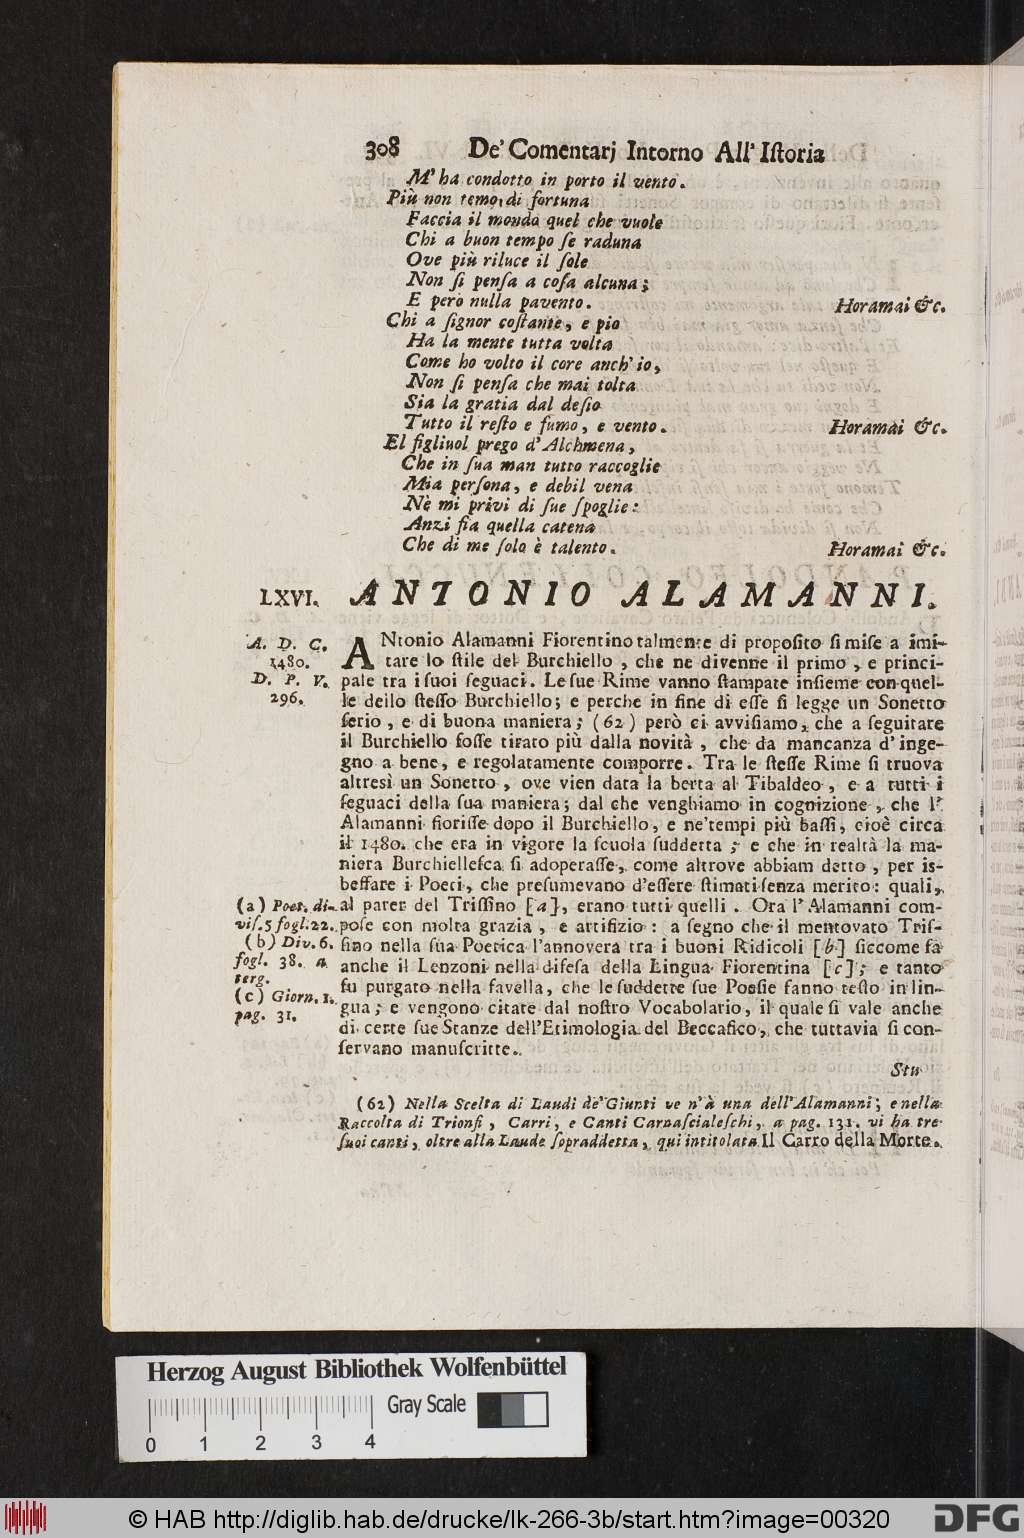 308 De' Comentarj Intorno All' Iſtoria
M' ha condotto in porto il vento.
Più non temo di fortuna
Faccia il mondo quel che vuole
Chi a buon tempo ſe raduna
Ove più riluce il ſole
Non ſi penſa a coſa alcuna;
E però nulla pavento. Horamai &c.
Chi a ſignor coſtante, e pio
Ha la mente tutta volta
Come ho volto il core anch' io,
Non ſi penſa che mai tolta
Sia la gratia dal deſio
Tutto il reſto e fumo, e vento. Horamai &c.
El figliuol prego d' Alchmena,
Che in ſua man tutto raccoglie
Mia perſona, e debil vena
Nè mi privi di ſue ſpoglie:
Anzi ſia quella catena
Che di me ſolo è talento. Horamai &c.
LXVI. ANTONIO ALAMANNI.
A. D. C.
1480.
D. P. V.
296.
ANtonio Alamanni Fiorentino talmente di propoſito ſi miſe a imi-
tare lo ſtile del Burchiello, che ne divenne il primo, e princi-
pale tra i ſuoi ſeguaci. Le ſue Rime vanno ſtampate inſieme con quel-
le dello ſteſſo Burchiello; e perche in fine di eſſe ſi legge un Sonetto
ſerio, e di buona maniera; (62) però ci avviſiamo, che a ſeguitare
il Burchiello foſſe tirato più dalla novità, che da mancanza d' inge-
gno a bene, e regolatamente comporre. Tra le ſteſſe Rime ſi truova
altresì un Sonetto, ove vien data la berta al Tibaldeo, e a tutti i
ſeguaci della ſua maniera; dal che venghiamo in cognizione, che l'
Alamanni fioriſſe dopo il Burchiello, e ne' tempi più baſſi, cioè circa
il 1480. che era in vigore la ſcuola ſuddetta; e che in realtà la ma-
niera Burchielleſca ſi adoperaſſe, come altrove abbiam detto, per is-
beffare i Poeti, che preſumevano d'eſſere ſtimati ſenza merito: quali,
al parer del Triſſino [a], erano tutti quelli. Ora l' Alamanni com-
poſe con molta grazia, e artifizio: a ſegno che il mentovato Triſ-
ſino nella ſua Poetica l'annovera tra i buoni Ridicoli [b] ſiccome fa
anche il Lenzoni nella difeſa della Lingua Fiorentina [c]; e tanto
fu purgato nella favella, che le ſuddette ſue Poeſie fanno teſto in lin-
gua; e vengono citate dal noſtro Vocabolario, il quale ſi vale anche
di certe ſue Stanze dell'Etimologia del Beccafico, che tuttavia ſi con-
ſervano manuſcritte.
(a) Poet. di-
viſ. 5 fogl. 22.
(b) Div. 6.
fogl. 38. a
terg.
(c) Giorn. 1.
pag. 31.
Stu
(62) Nella Scelta di Laudi de' Giunti ve n' à una dell' Alamanni; e nella
Raccolta di Trionfi, Carri, e Canti Carnaſcialeſchi, a pag. 131. vi ha tre
ſuoi canti, oltre alla Laude ſopraddetta, qui intitolata Il Carro della Morte.
Herzog August Bibliothek Wolfenbüttel
Gray Scale
0 1 2 3 4
© HAB http://diglib.hab.de/drucke/lk-266-3b/start.htm?image=00320
DFG